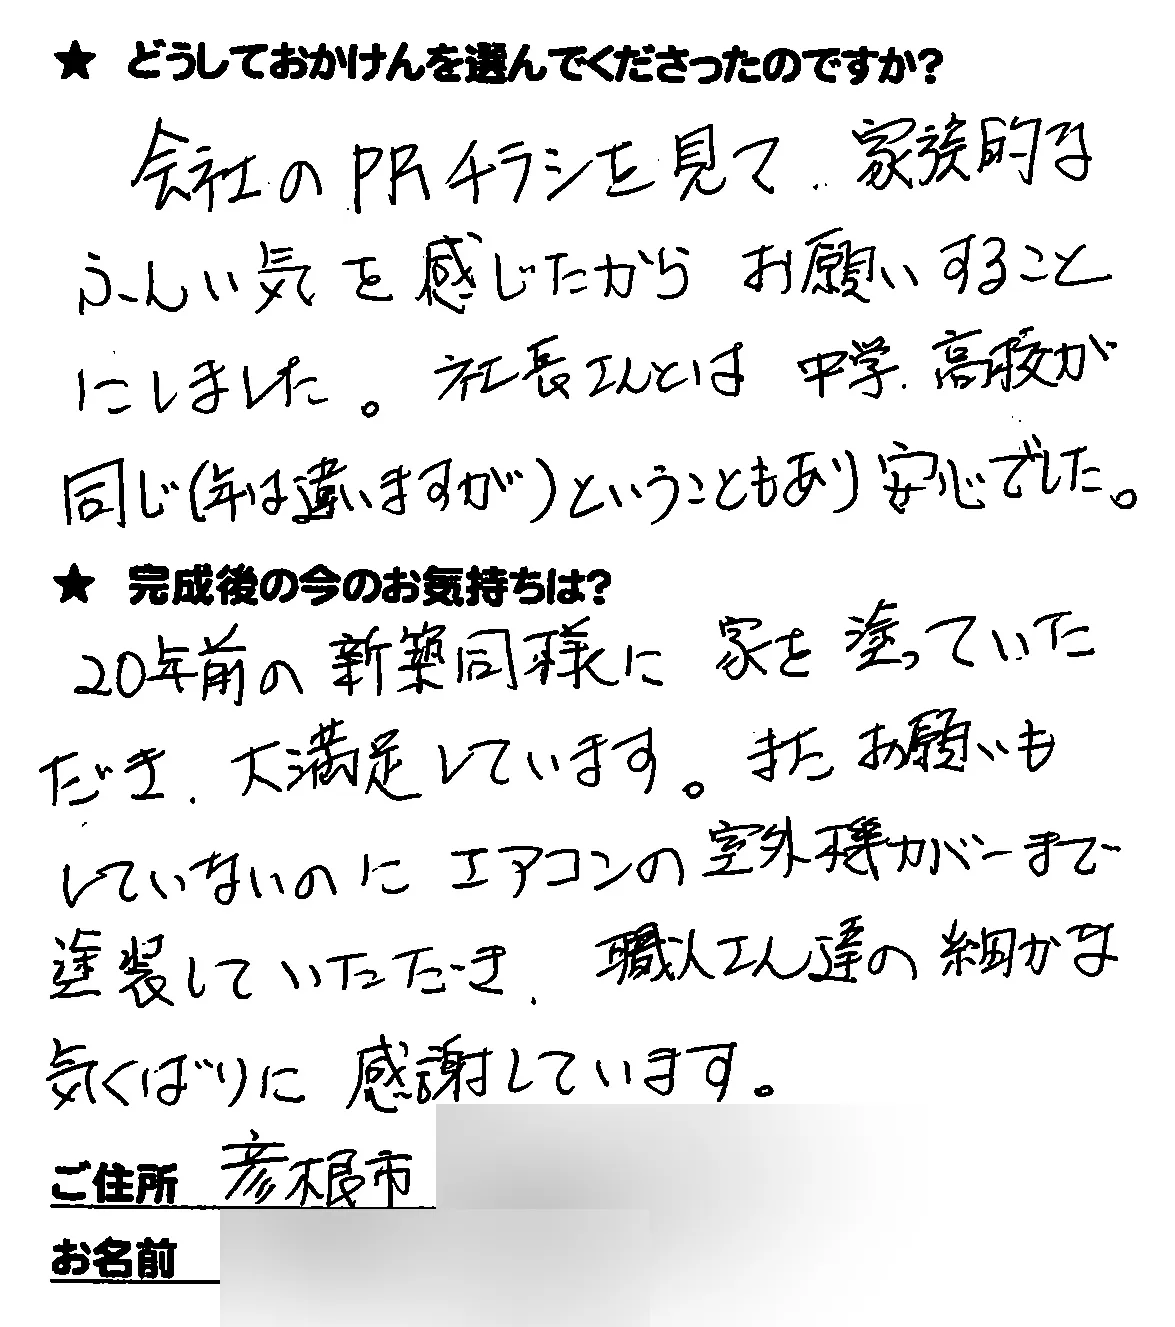 ★ どうしておかけんを選んでくださったのですか?
会社のPRチラシを見て、家族的な
ふんい気を感じたからお願いすること
にしました。社長さんとは中学、高校が
同じ(年は違いますが)ということもあり安心でした。
★ 完成後の今のお気持ちは?
20年前の新築同様に家を塗っていた
だき、大満足しています。またお願いも
していないのにエアコンの室外機カバーまで
塗装していただき、職人さん達の細かな
気くばりに感謝しています。
ご住所 彦根市
お名前